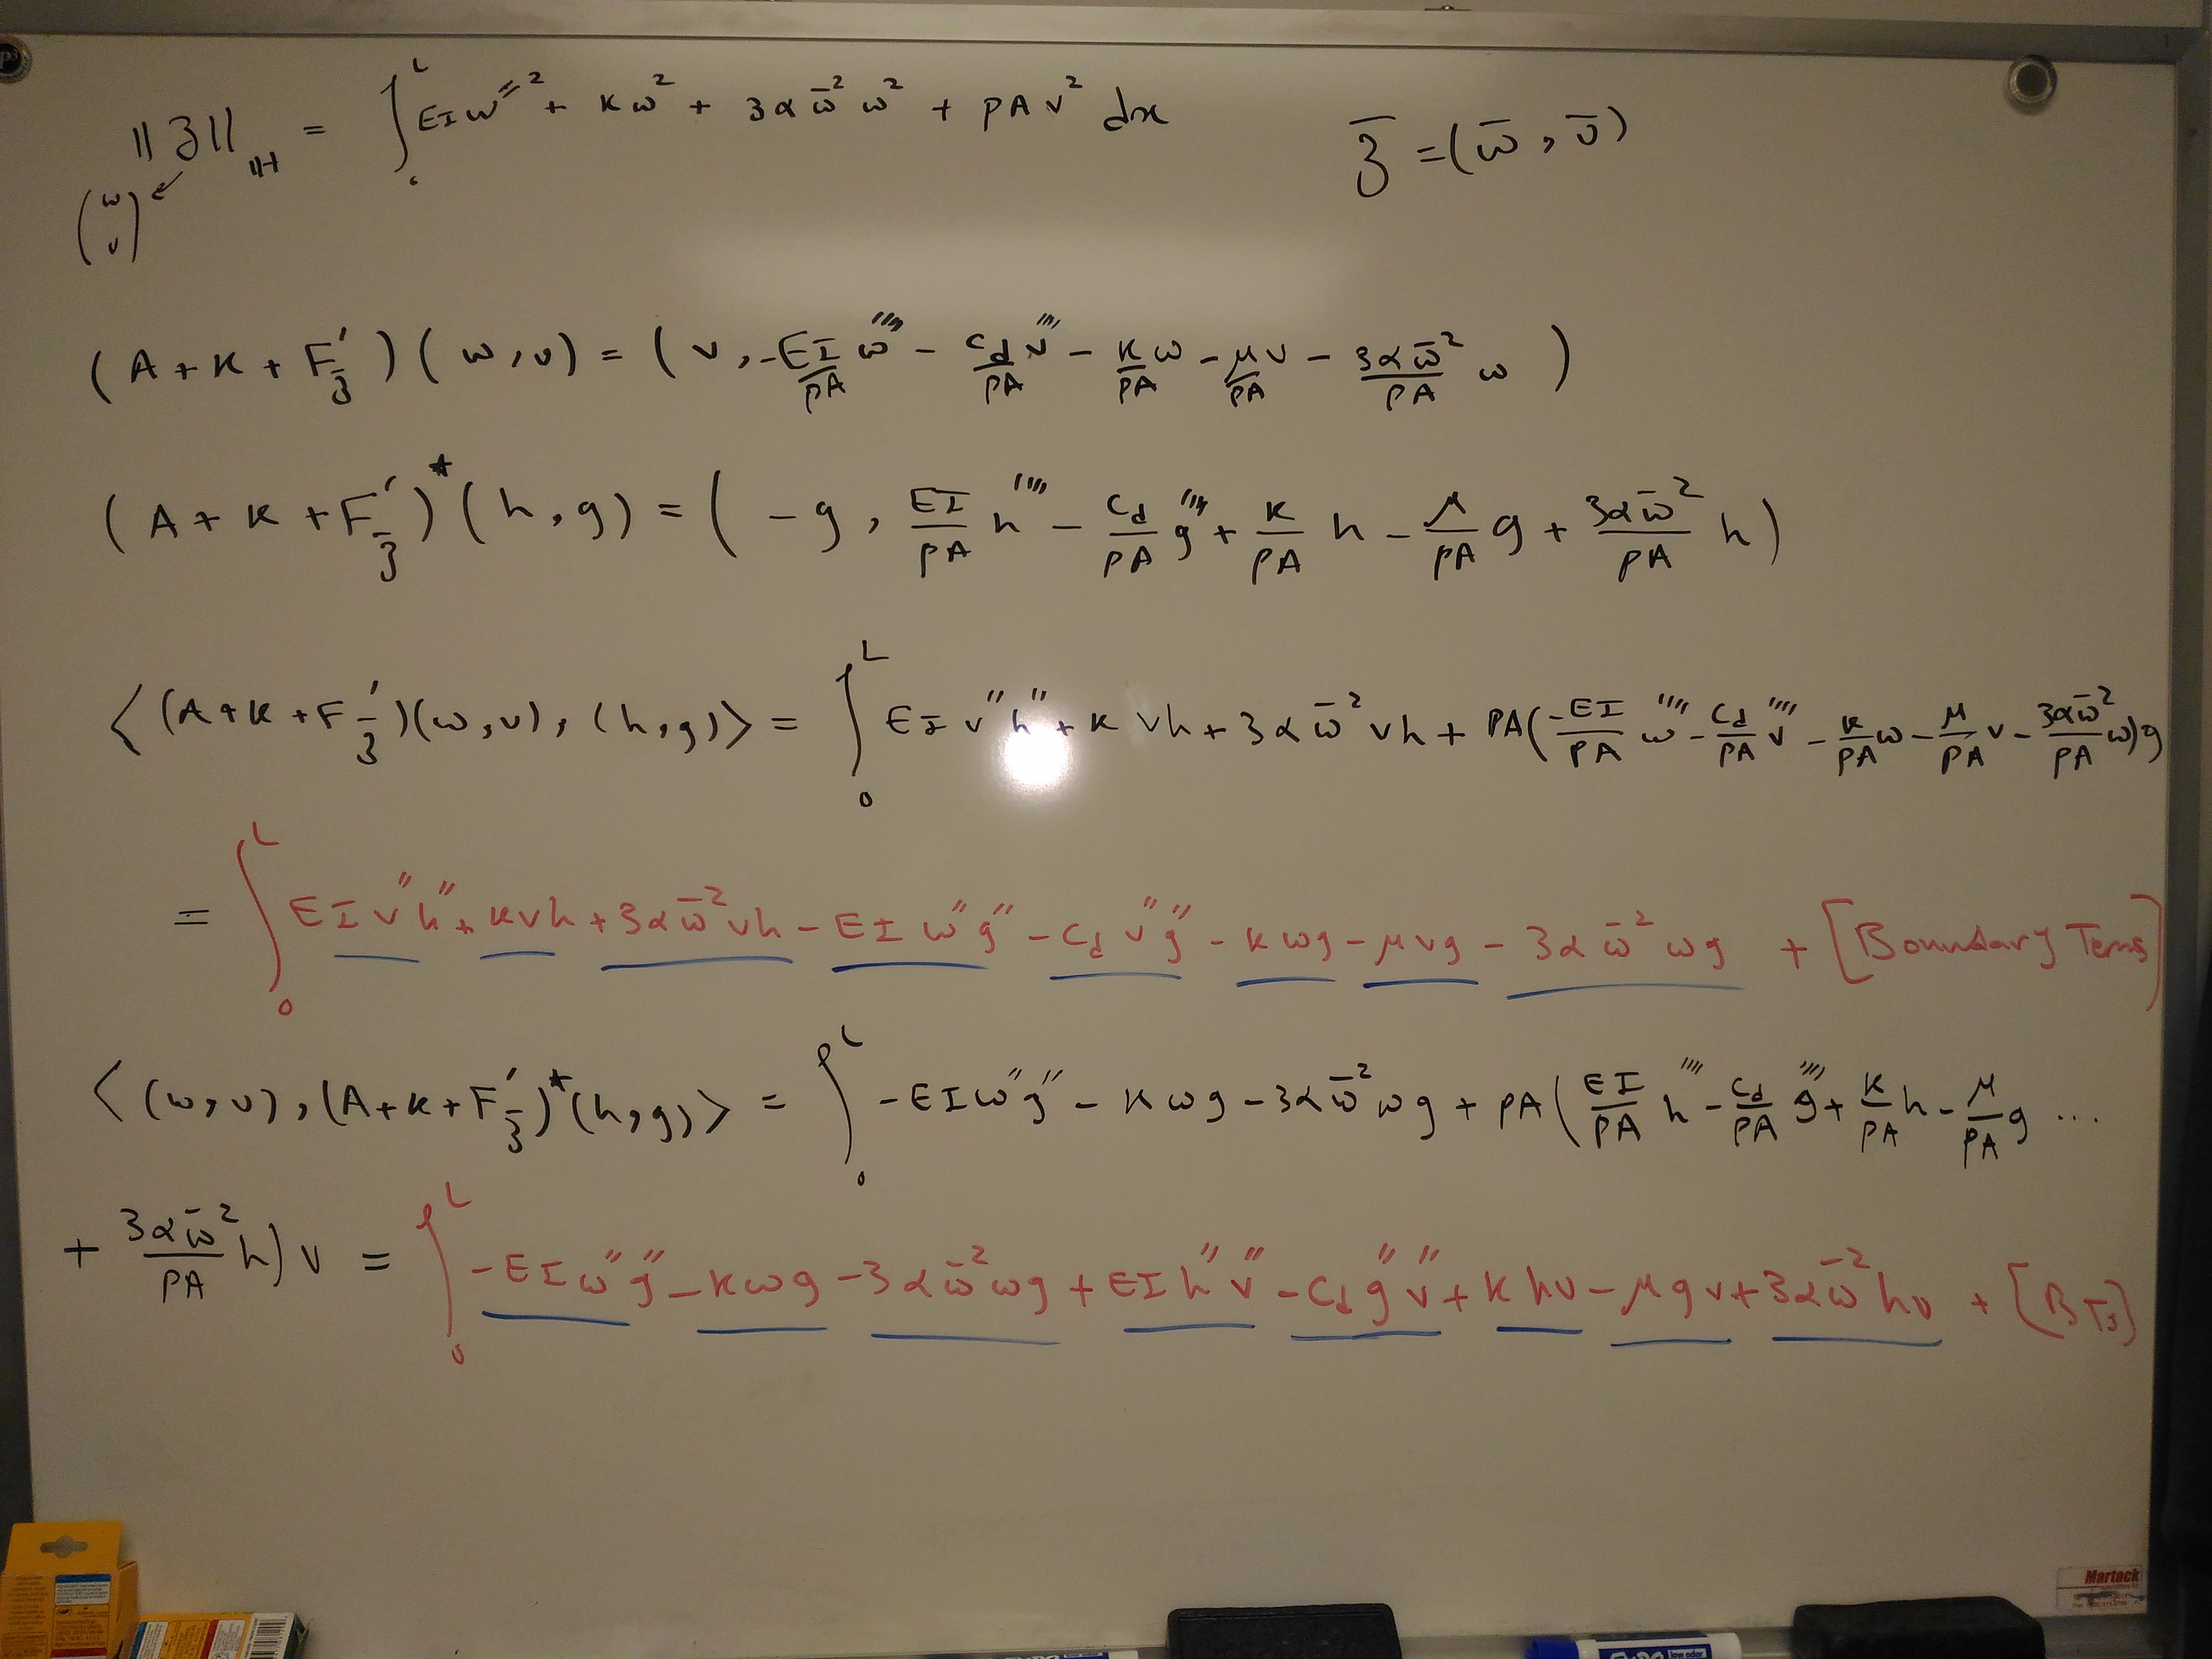 ‖𝔷‖_ℍ = ∫₀ᴸ EIw″² + kw² + 3αw̄²w² + ρAv² dx
𝔷̄ = (w̄, v̄)
(w v)
(A + K + F′_𝔷̄)(w, v) = (v, -EI/ρA w⁗ - C_d/ρA v⁗ - k/ρA w - μ/ρA v - 3αw̄²/ρA w)
(A + K + F′_𝔷̄)*(h, g) = (-g, EI/ρA h⁗ - C_d/ρA g⁗ + k/ρA h - μ/ρA g + 3αw̄²/ρA h)
⟨(A+K+F′_𝔷̄)(w,v), (h,g)⟩ = ∫₀ᴸ EI v″h″ + k vh + 3αw̄² vh + ρA(-EI/ρA w⁗ - C_d/ρA v⁗ - k/ρA w - μ/ρA v - 3αw̄²/ρA w)g
= ∫₀ᴸ EI v″h″ + kvh + 3αw̄²vh - EI w″g″ - C_d v″g″ - kwg - μvg - 3αw̄²wg + [Boundary Terms]
⟨(w,v), (A+K+F′_𝔷̄)*(h,g)⟩ = ∫₀ᴸ -EIw″g″ - kwg - 3αw̄²wg + ρA(EI/ρA h⁗ - C_d/ρA g⁗ + k/ρA h - μ/ρA g ...
+ 3αw̄²/ρA h)v = ∫₀ᴸ -EIw″g″ - kwg - 3αw̄²wg + EI h″v″ - C_d g″v″ + k hv - μgv + 3αw̄²hv + [BTs]
Martack
low odor